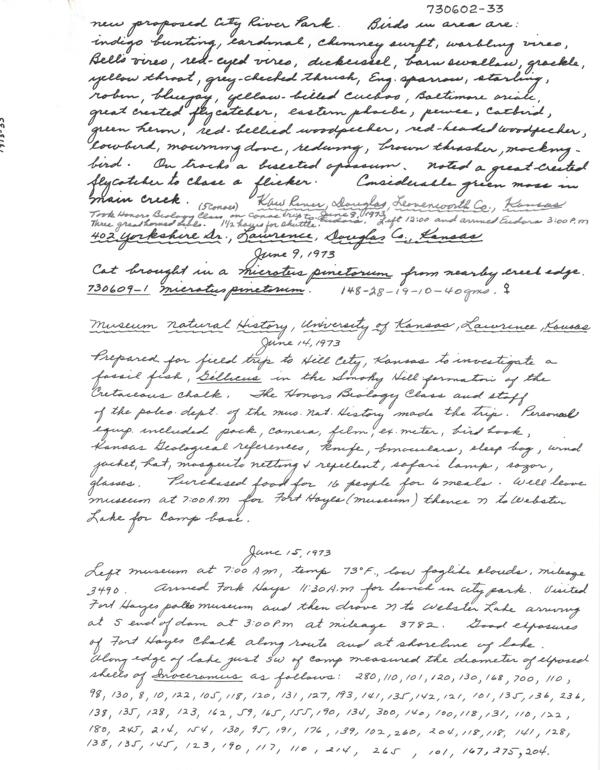 730602-33
new proposed City River Park. Birds in area are:
indigo bunting, cardinal, chimney swift, warbling vireo,
Bell's vireo, red-eyed vireo, dickcissel, barn swallow, grackle,
yellow throat, grey-cheked thrush, Eng. sparrow, starling,
robin, bluejay, yellow-billed cuckoo, Baltimore oriole,
great crested flycatcher, eastern phoebe, pewee, catbird,
green heron, red-bellied woodpecker, red-headed woodpecker,
cowbird, mourning dove, redwing, brown thrasher, mocking-
bird. On tracks a bisected opossum. Noted a great-crested
flycatcher to chase a flicker. Considerable green moss in
main creek. (5 canoes) Kaw River, Douglas, Levenworth Co., Kansas
June 8, 1973
Took Honors Biology Class on canoe trip to Eudora. Left 12:00 and arrived Eudora 3:00 P.m
Three great horned owls. 1½ hours for shuttle.
402 Yorkshire Dr., Lawrence, Douglas Co., Kansas
June 9, 1973
Cat brought in a Microtus pinetorum from nearby creek edge.
730609-1 Microtus pinetorum. 148-28-19-10-40gms. ♀
Museum Natural History, University of Kansas, Lawrence, Kansas
June 14, 1973
Prepared for field trip to Hill City, Kansas to investigate a
fossil fish, Gillicus in the Smoky Hill formation of the
Cretaceous chalk. The Honors Biology Class and staff
of the paleo. dept. of the mus. Nat. History made the trip. Personal
equip. included pack, camera, film, ex. meter, bird book,
Kansas Geological references, knife, binoculars, sleep bag, wind
jacket, hat, mosquito netting & repellent, safari lamp, razor,
glasses. Purchased food for 16 people for 6 meals. Will leave
museum at 7:00 A.M for Fort Hayes (museum) thence N to Webster
Lake for camp base.
June 15, 1973
Left museum at 7:00 A.m, temp 73°F., low foglike clouds, mileage
3490. Arrived Fork Hays 11:30 A.m for lunch in city park. Visited
Fort Hayes paleo museum and then drove N to Webster Lake arriving
at S end of dam at 3:00 P.m at mileage 3782. Good exposures
of Fort Hayes Chalk along route and at shoreline of lake.
Along edge of lake just SW of camp measured the diameter of exposed
shells of Inoceramus as follows: 280, 110, 101, 120, 130, 168, 700, 110,
98, 130, 8, 10, 122, 105, 118, 120, 131, 127, 193, 141, 135, 142, 121, 101, 135, 136, 236,
138, 135, 128, 123, 162, 59, 165, 155, 190, 134, 300, 140, 100, 118, 131, 110, 122,
180, 245, 214, 154, 130, 95, 191, 176, 139, 102, 260, 204, 118, 118, 141, 128,
138, 135, 145, 123, 190, 117, 110, 214, 265, 101, 167, 275, 204.